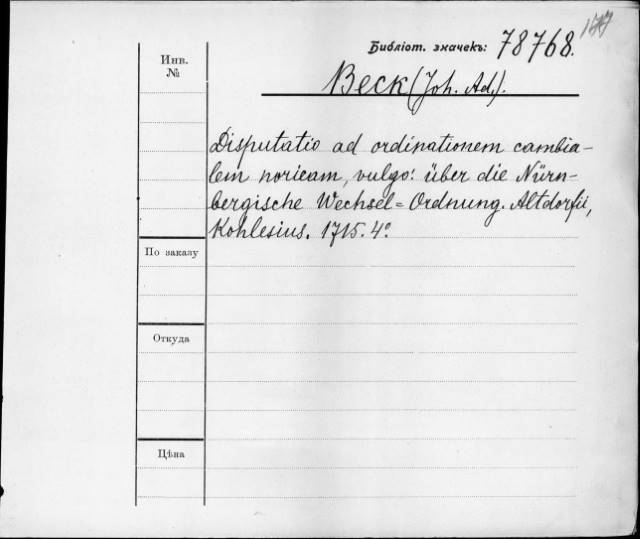 177
Библіот. значекъ: 78768.
Инв.
№
Beck (Joh. Ad.).
Disputatio ad ordinationem cambia-
lem noricam, vulgo: über die Nürn-
bergische Wechsel=Ordnung. Altdorfii,
Kohlesius. 1715. 4º.
По заказу
Откуда
Цѣна